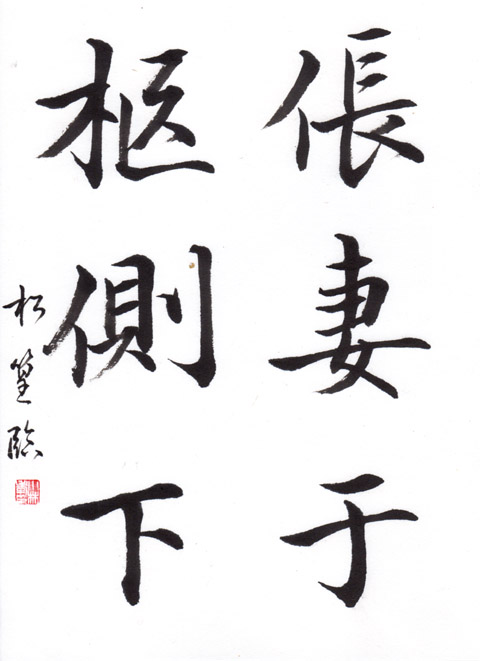 倀妻于
柩側下
松篁臨